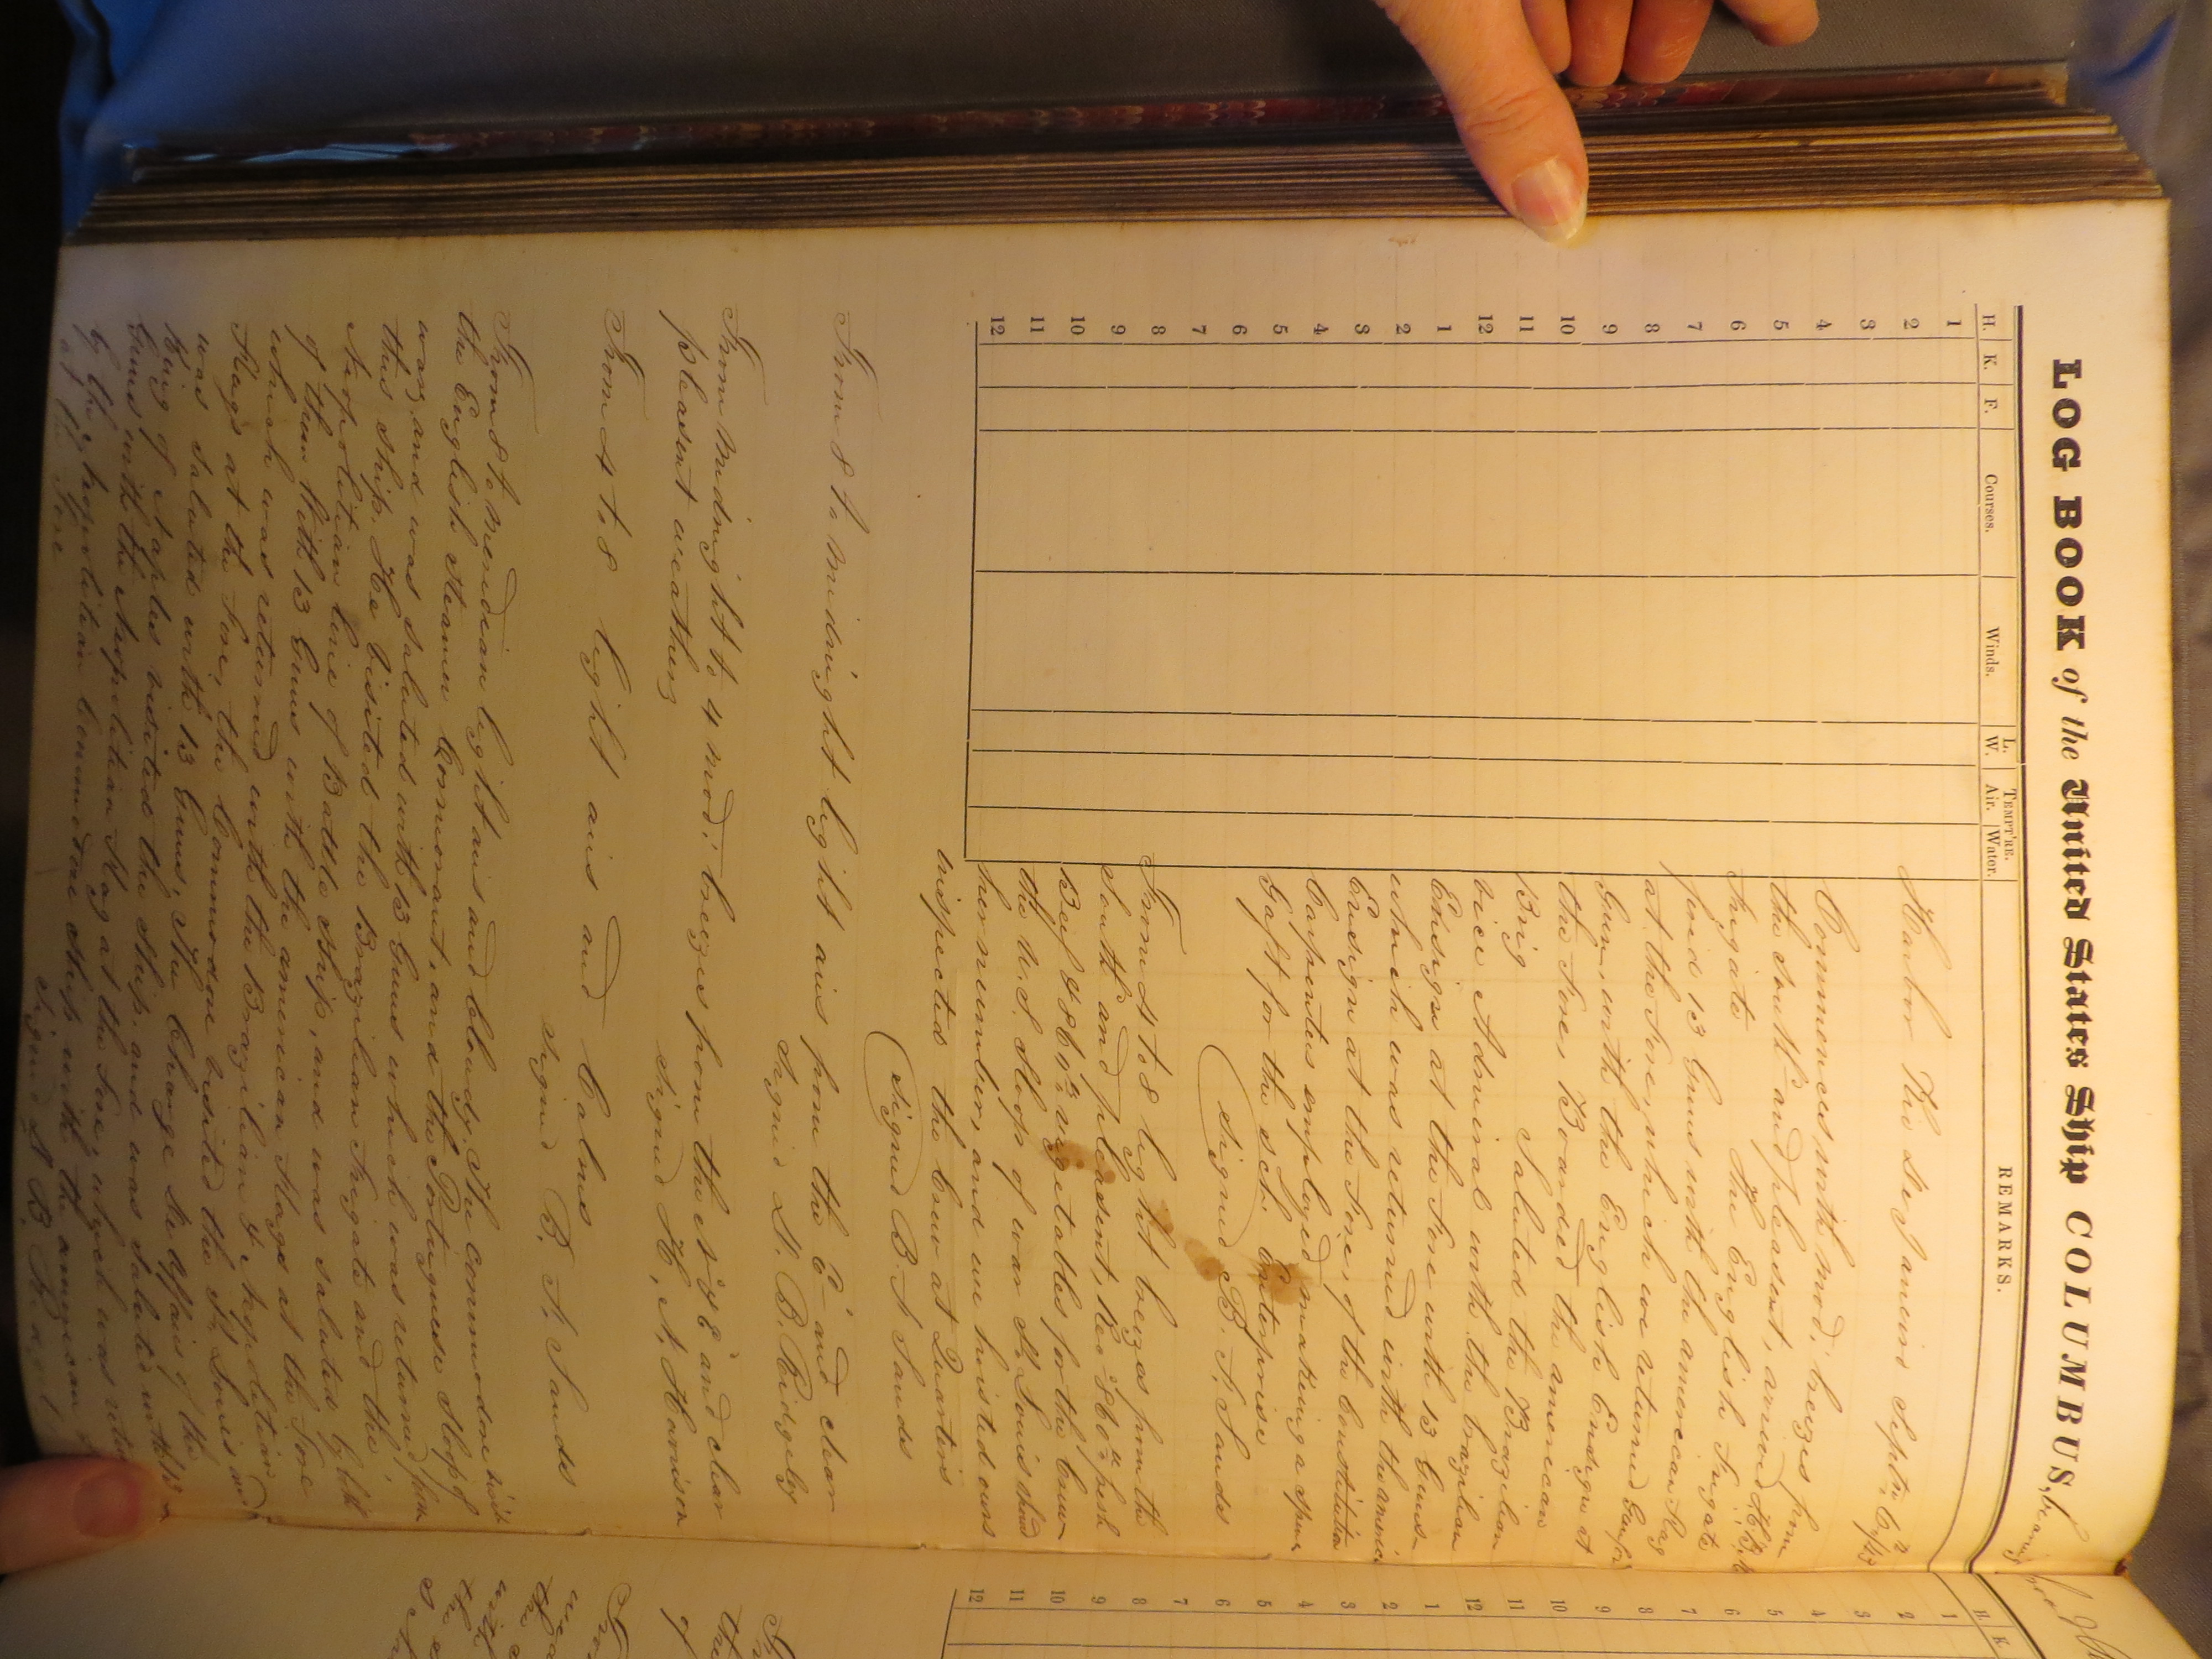 LOG BOOK of the United States Ship COLUMBUS,
H. K. F. Courses. Winds. L. W. TEMPT'RE. Air. Water. REMARKS.
1
2
3
4
5
6
7
8
9
10
11
12
1
2
3
4
5
6
7
8
9
10
11
12
Harbor Rio de Janeiro Septr 6th /43
Commences with mod: breezes from
the South and pleasant, arrived H B M
Frigate The English Frigate
fired 13 Guns with the american flag
at the Fore, which we returned Gun for
Gun, with the English Ensign at
the Fore, Boarded the american
Brig Saluted the Brazilian
vice Admiral with the brazilian
Ensign at the Fore with 13 Guns
which was returned with the american
Ensign at the Fore, of the Constitution
Carpenters employed making a spun
Gaft for the schr Enterprise
Signed B. F. Sands
From 4 to 8 light breezes from the
South and pleasant, Recd fresh
Beef & vegetables for the Crew
the U.S. Sloop of war St Louis showed
her number, and we hoisted ours
inspected the Crew at Quarters
Signed B F Sands
From 8 to midnight light airs from the E and clear
Signed S. B. Bidgely
From midnight to 4 mod: breezes from the N & E and clear
pleasant weather
Signed H. N. Harrison
From 4 to 8 light airs and Calms
Signed B. F. Sands
From 8 to meridian light airs and Cloudy. The Commodore visited
the English Steamer Cormorant, and the Portuguese Sloop of
war, and was saluted with 13 Guns which was returned from
this ship. He visited the Brazilian Frigate and the
Neapolitian Line of Battle Ship, and was saluted by both
of them with 13 Guns with the american Flags at the Fore
which was returned with the Brazilian & Nepolitian
Flags at the Fore, the Commodore visited the St Louis and
was saluted with 13 Guns, The Charge de Affairs of the
King of Naples visited the Ship and was saluted with
Guns with the Neopolitian Flag at the Fore, which was
by the Nepolitian Commodore Ship with the american
at the Fore
Signed
H. K.
1
2
3
4
5
6
7
8
9
10
11
12
1
2
3
4
5
6
7
8
9
10
11
12